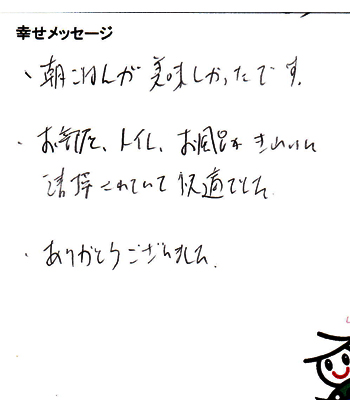 幸せメッセージ
・朝ごはんが美味しかったです。
・お部屋、トイレ、お風呂がきれいに
清掃されていて快適でした。
・ありがとうございました。